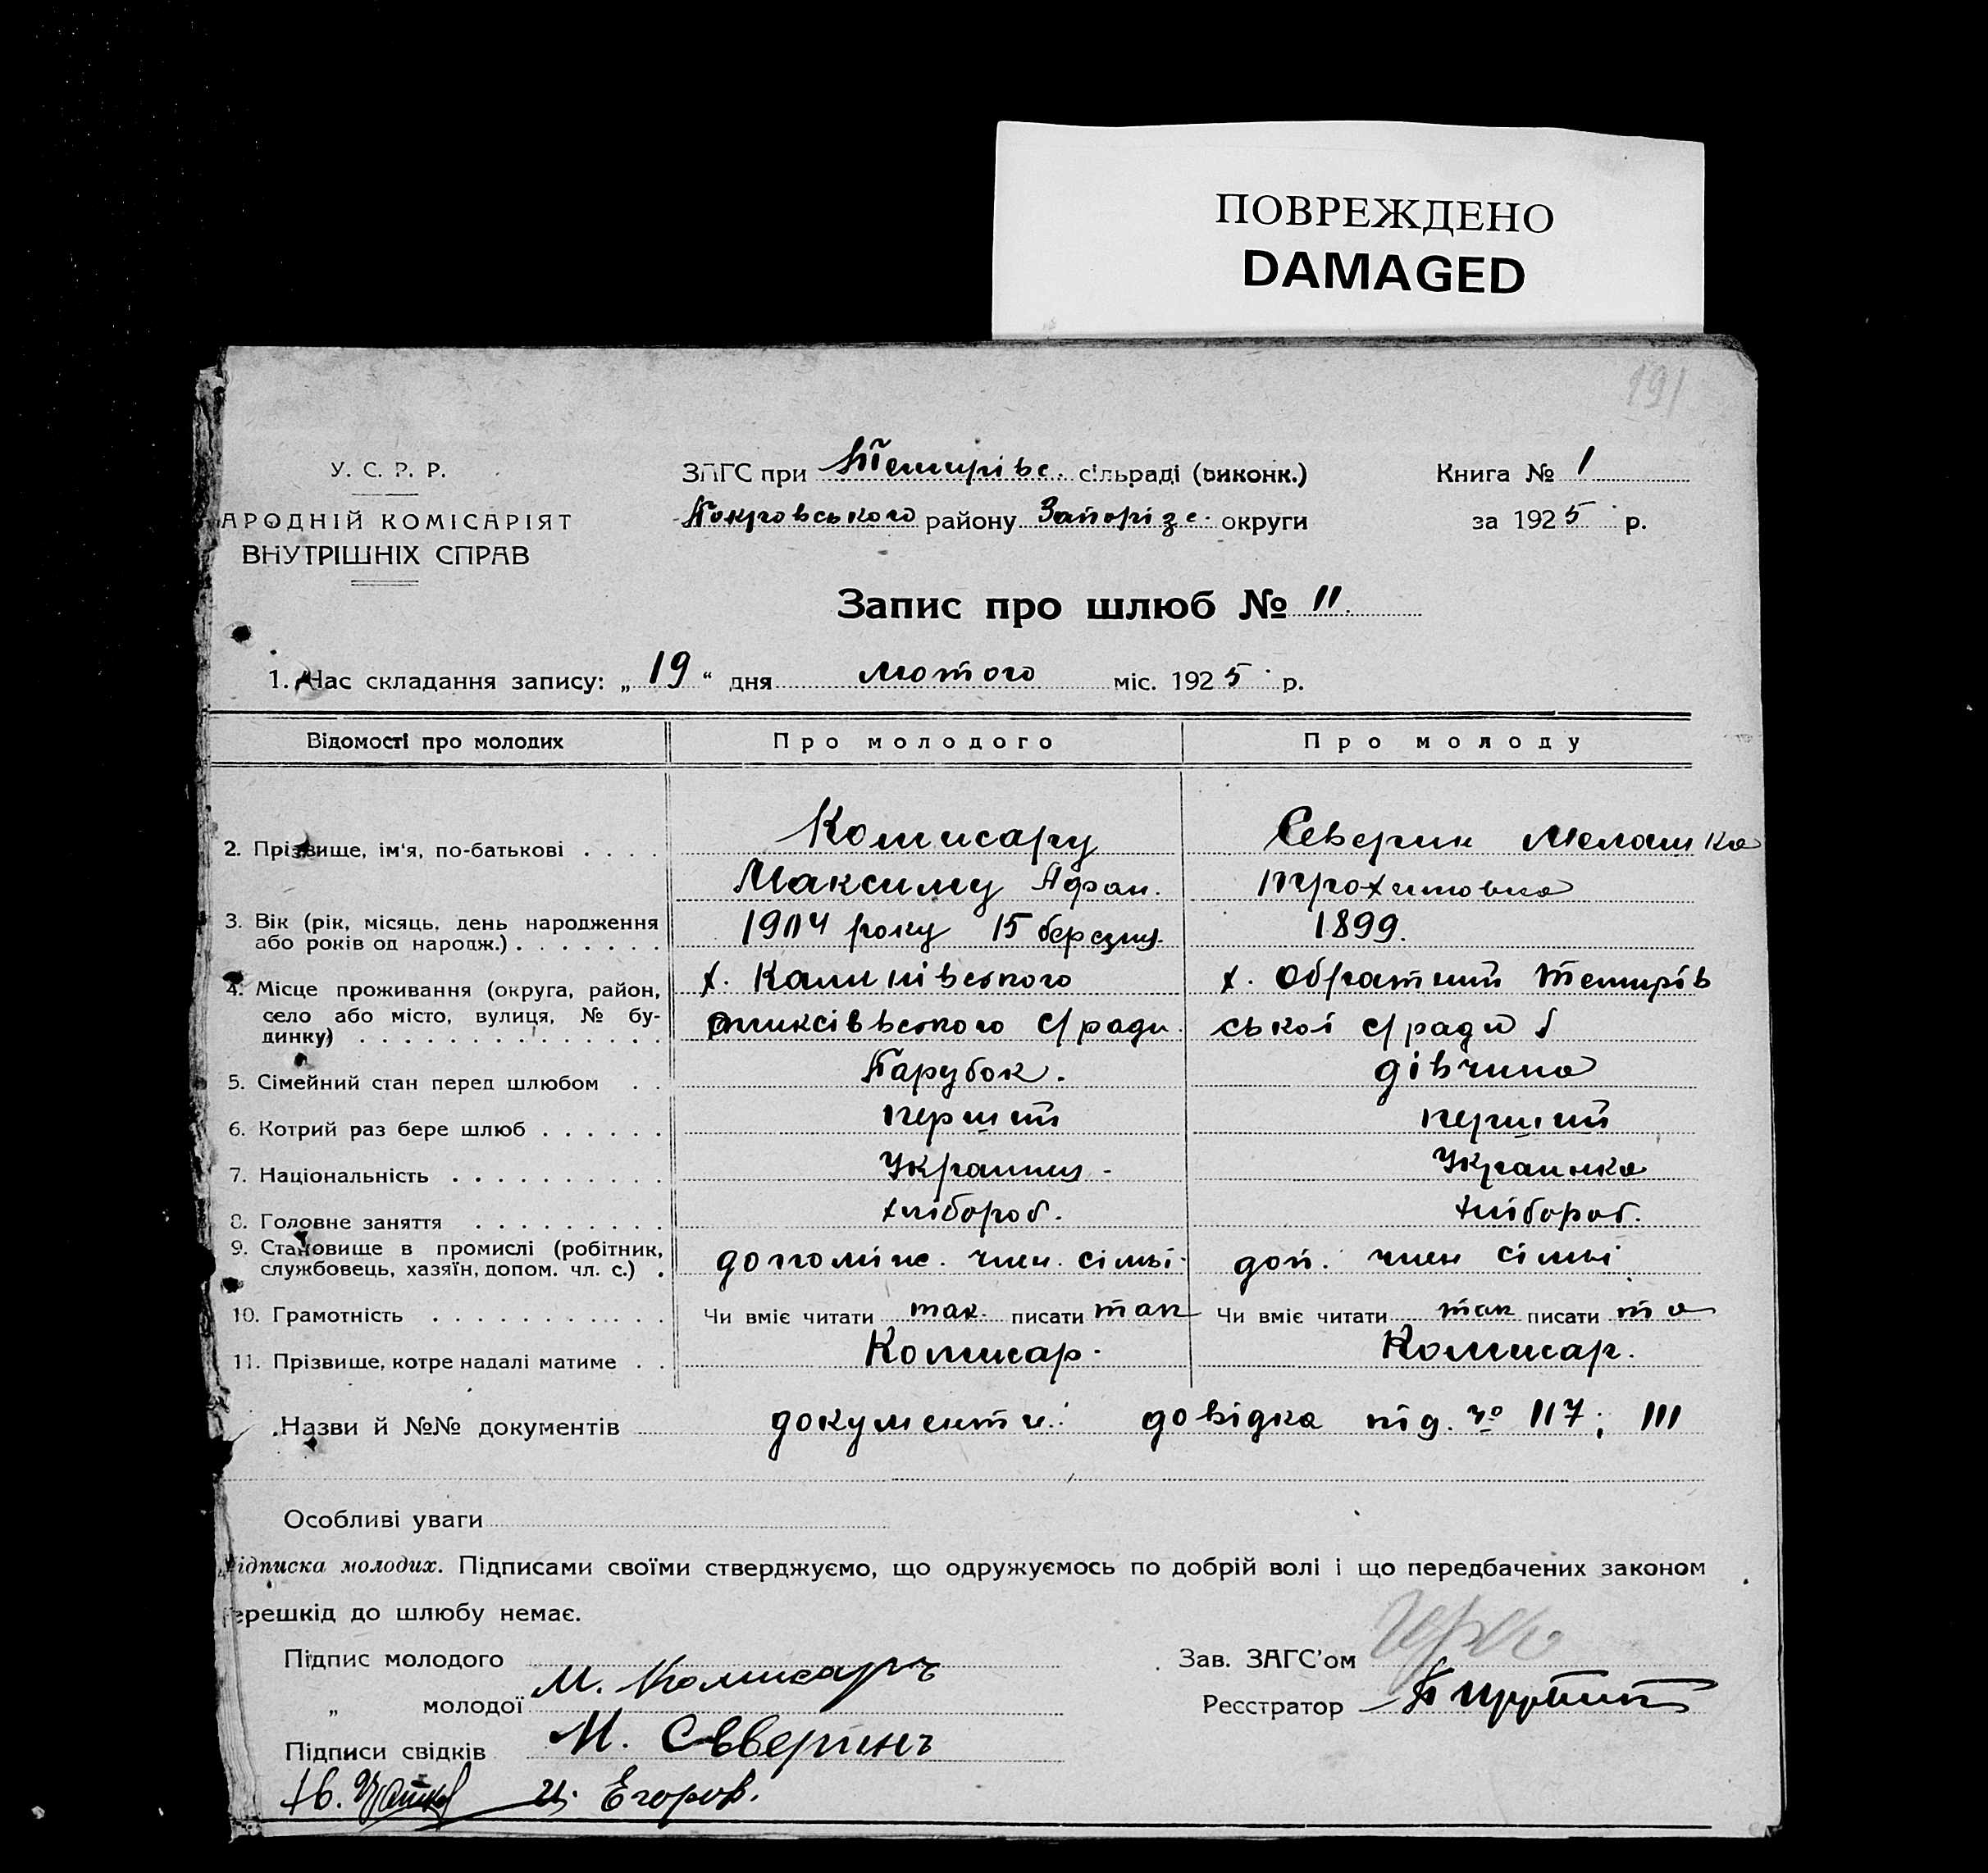 ПОВРЕЖДЕНО
DAMAGED
191
У. С. Р. Р.
АРОДНІЙ КОМІСАРІЯТ
ВНУТРІШНІХ СПРАВ
ЗАГС при Темирівс. сільраді (виконк.)
Покровського району Запоріз с. округи
Книга № 1
за 1925 р.
Запис про шлюб № 11.
1. Час складання запису: „ 19 “ дня лютого міс. 1925 р.
Відомості про молодих Про молодого Про молоду
2. Прізвище, ім'я, по-батькові . . . . Комисару Северин Мелашка
Максиму Афан. Трохимовна
3. Вік (рік, місяць, день народження
або років од народж.) . . . . . . . 1904 року 15 березня. 1899.
4. Місце проживання (округа, район,
село або місто, вулиця, № бу-
динку) . . . . . . . . . . . . . .
х. Калинівського х. Обратний Темирів
с/ради ської с/ради
5. Сімейний стан перед шлюбом . . Парубок. дівчина
6. Котрий раз бере шлюб . . . . . . перший перший
7. Національність . . . . . . . . . . Украинц - Украинка
8. Головне заняття . . . . . . . . . хлібороб. хлібороб.
9. Становище в промислі (робітник,
службовець, хазяїн, допом. чл. с.) . член. сімьі. доп. член сімьі
10. Грамотність . . . . . . . . . . . Чи вміє читати так. писати так Чи вміє читати так писати та
11. Прізвище, котре надалі матиме . . Комисар. Комисар.
Назви й №№ документів документи: довідка під. № 117; 111
Особливі уваги
ідписка молодих. Підписами своїми стверджуємо, що одружуємось по добрій волі і що передбачених законом
ерешкід до шлюбу немає.
Підпис молодого М. Комисаръ
„ молодої М. Сѣверинъ
Підписи свідків
И. Егоров.
Зав. ЗАГС'ом
Реєстратор